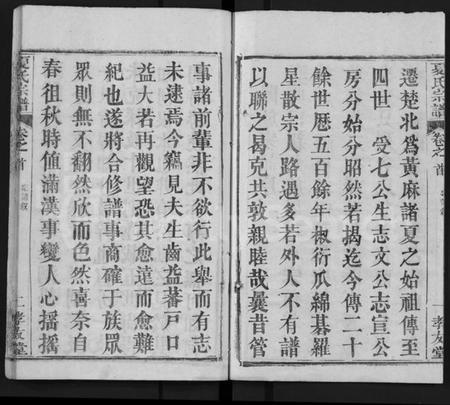 夏氏宗譜
卷之首
遷楚北爲黃麻諸夏之始祖傳至
四世 受七公生志文公志宣公
房分始分昭然若揭迄今傳二十
餘世歷五百餘年椒衍瓜綿碁羅
星散宗人路遇多若外人不有譜
以聯之曷克共敦親睦哉曩昔管
一 孝友堂
事諸前輩非不欲行此舉而有志
未逮焉今窺見夫生齒益蕃戸口
益大若再觀望恐其愈遠而愈難
紀也遂將合修譜事商確于族眾
眾則無不翻然欣而色然喜奈自
春徂秋時値滿漢事變人心搖搖
夏氏宗譜
卷之首
二 孝友堂